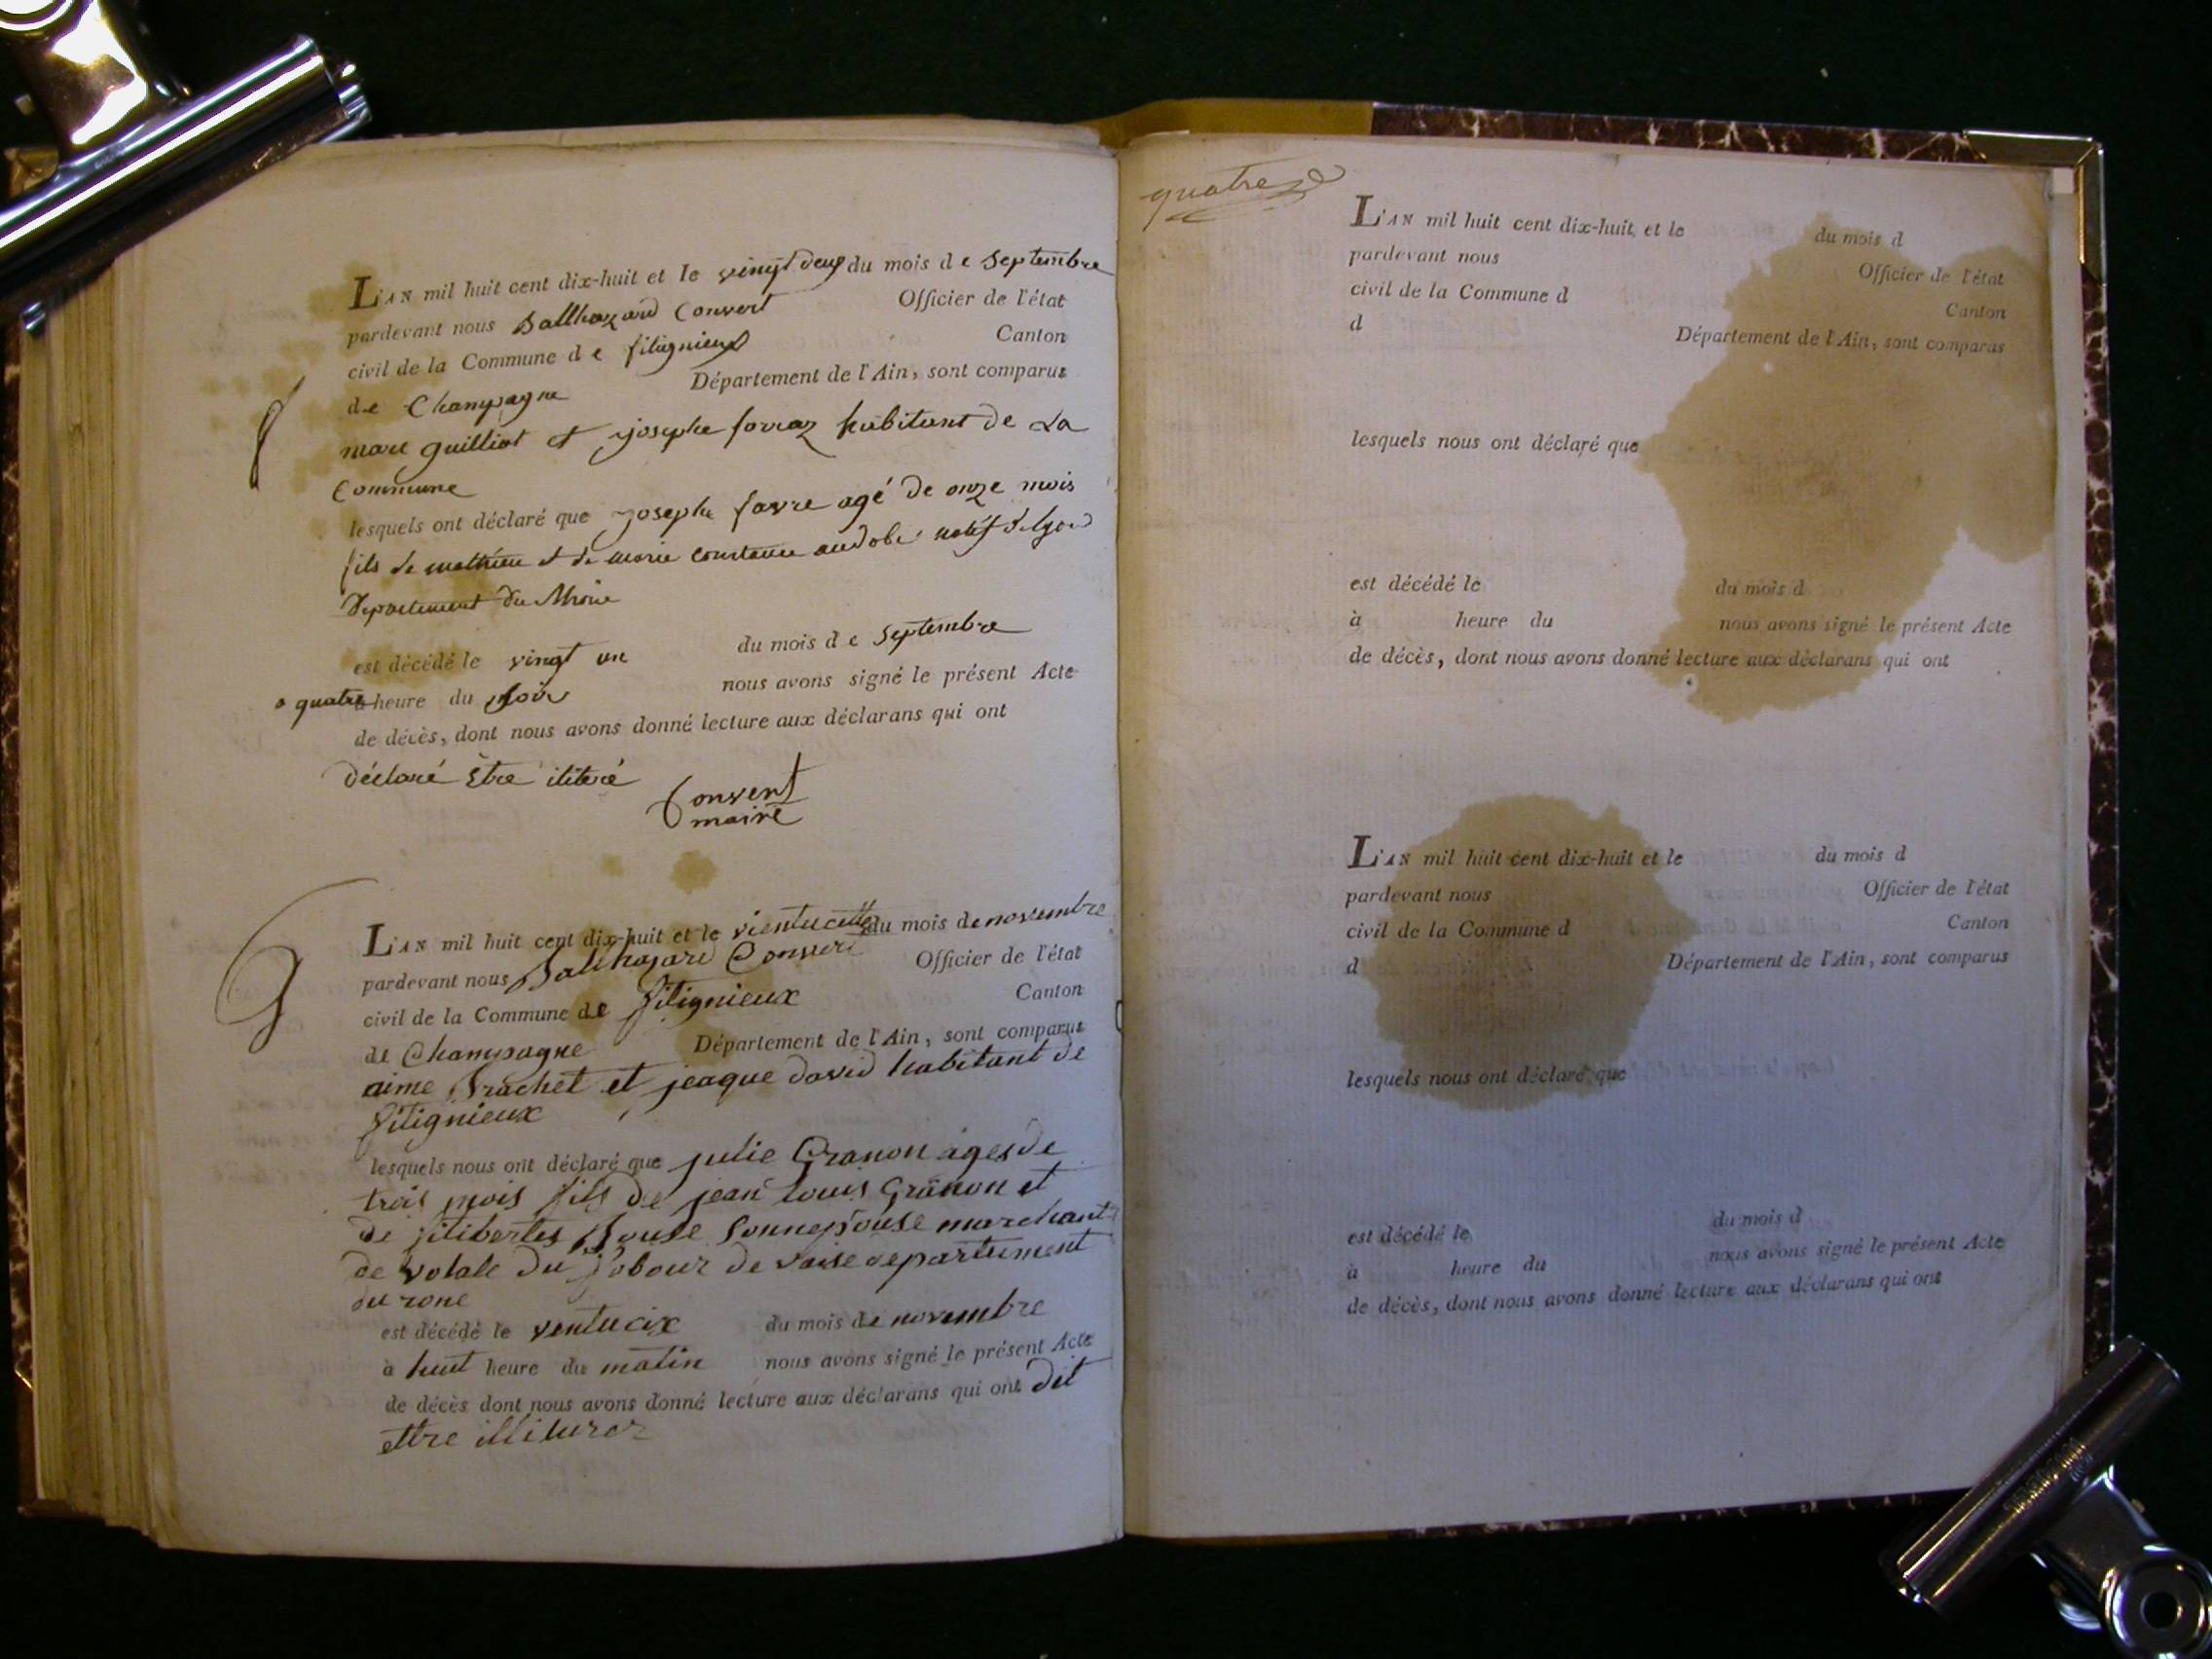 L'AN mil huit cent dix-huit et le vingt deux du mois de Septembre
pardevant nous Balthazard Convert Officier de l'état
civil de la Commune de fitignieux Canton
de Champagne Département de l'Ain, sont comparus
marc guilliot et joseph forraz habitant de La
Commune
lesquels ont déclaré que joseph favre agé de onze mois
fils de mathieu et de marie constance natif de lyon
Département du Rhone
est décédé le vingt un du mois de Septembre
a quatre heure du soir nous avons signé le présent Acte
de décès, dont nous avons donné lecture aux déclarans qui ont
déclaré être iliteré
Convert
maire
L'AN mil huit cent dix-huit et le vientucette du mois de novembre
pardevant nous Balthazard Convert Officier de l'état
civil de la Commune de fitignieux Canton
de Champagne Département de l'Ain, sont comparus
aime Brachet et jeaque david habitant de
fitignieux
lesquels nous ont déclaré que julie Granon ages de
trois mois fils de jean louis Granon et
de jilibertes marchant
de volale du fobour de vaise departement
du rone
est décédé le ventucix du mois de novembre
à huit heure du matin nous avons signé le présent Acte
de décès dont nous avons donné lecture aux déclarans qui ont dit
ettre
quatre
L'AN mil huit cent dix-huit, et le du mois d
pardevant nous Officier de l'état
civil de la Commune d Canton
d Département de l'Ain, sont comparus
lesquels nous ont déclaré que
est décédé le du mois d
à heure du nous avons signé le présent Acte
de décès, dont nous avons donné lecture aux déclarans qui ont
L'AN mil huit cent dix-huit et le du mois d
pardevant nous Officier de l'état
civil de la Commune d Canton
d Département de l'Ain, sont comparus
lesquels nous ont déclaré que
est décédé le du mois d
à heure du nous avons signé le présent Acte
de décès, dont nous avons donné lecture aux déclarans qui ont